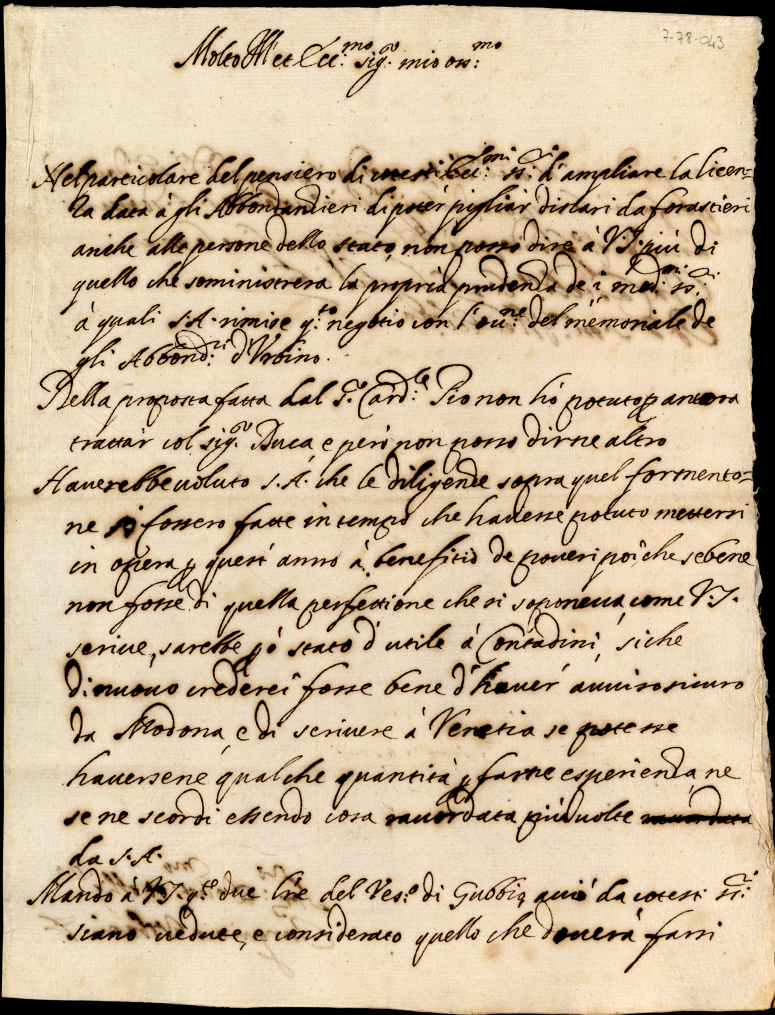 7-78-043
Molto Ill.e et Ecc.mo sig.r mio oss.mo
Nel particolare del pensiero di cotesti Ecc.mi ss.ri d'ampliare la licen=
za data à gli Abbondandieri di poter pigliar dinari da forastieri
anche alle persone dello stato, non posso dire à V.S. più di
quello che somministrerà la propria prudenza de i med.mi ss.ri
à quali S.A. rimise q.to negotio con l' del memoriale de
gli Abbond.ri d'Urbino.
Della proposta fatta dal S.r Card.le Pio non hò potuto p ancora
trattar col sig.r Duca e però non posso dirne altro
Haverebbe voluto S.A. che le diligenze sopra quel formento=
ne si fossero fatte in tempo che havesse potuto mettersi
in opera p quest'anno à benefitio de poveri poiche se bene
non fosse di quella perfettione che si soponeva come V.S.
scrive, sarebbe pò stato d'utile à Contadini, siche
di nuovo crederei fosse bene d'haver avviso sicuro
da Modona, e di scrivere à Venetia se potesse
haversene qualche quantità p farne esperienza ne
se ne scordi essendo cosa raccordata più volte
da S.A.
Mando à V.S. q.te due l're del Vesc.o di Gubbio acciò da cotesti ss.ri
siano vedute, e considerato quello che doverà farsi